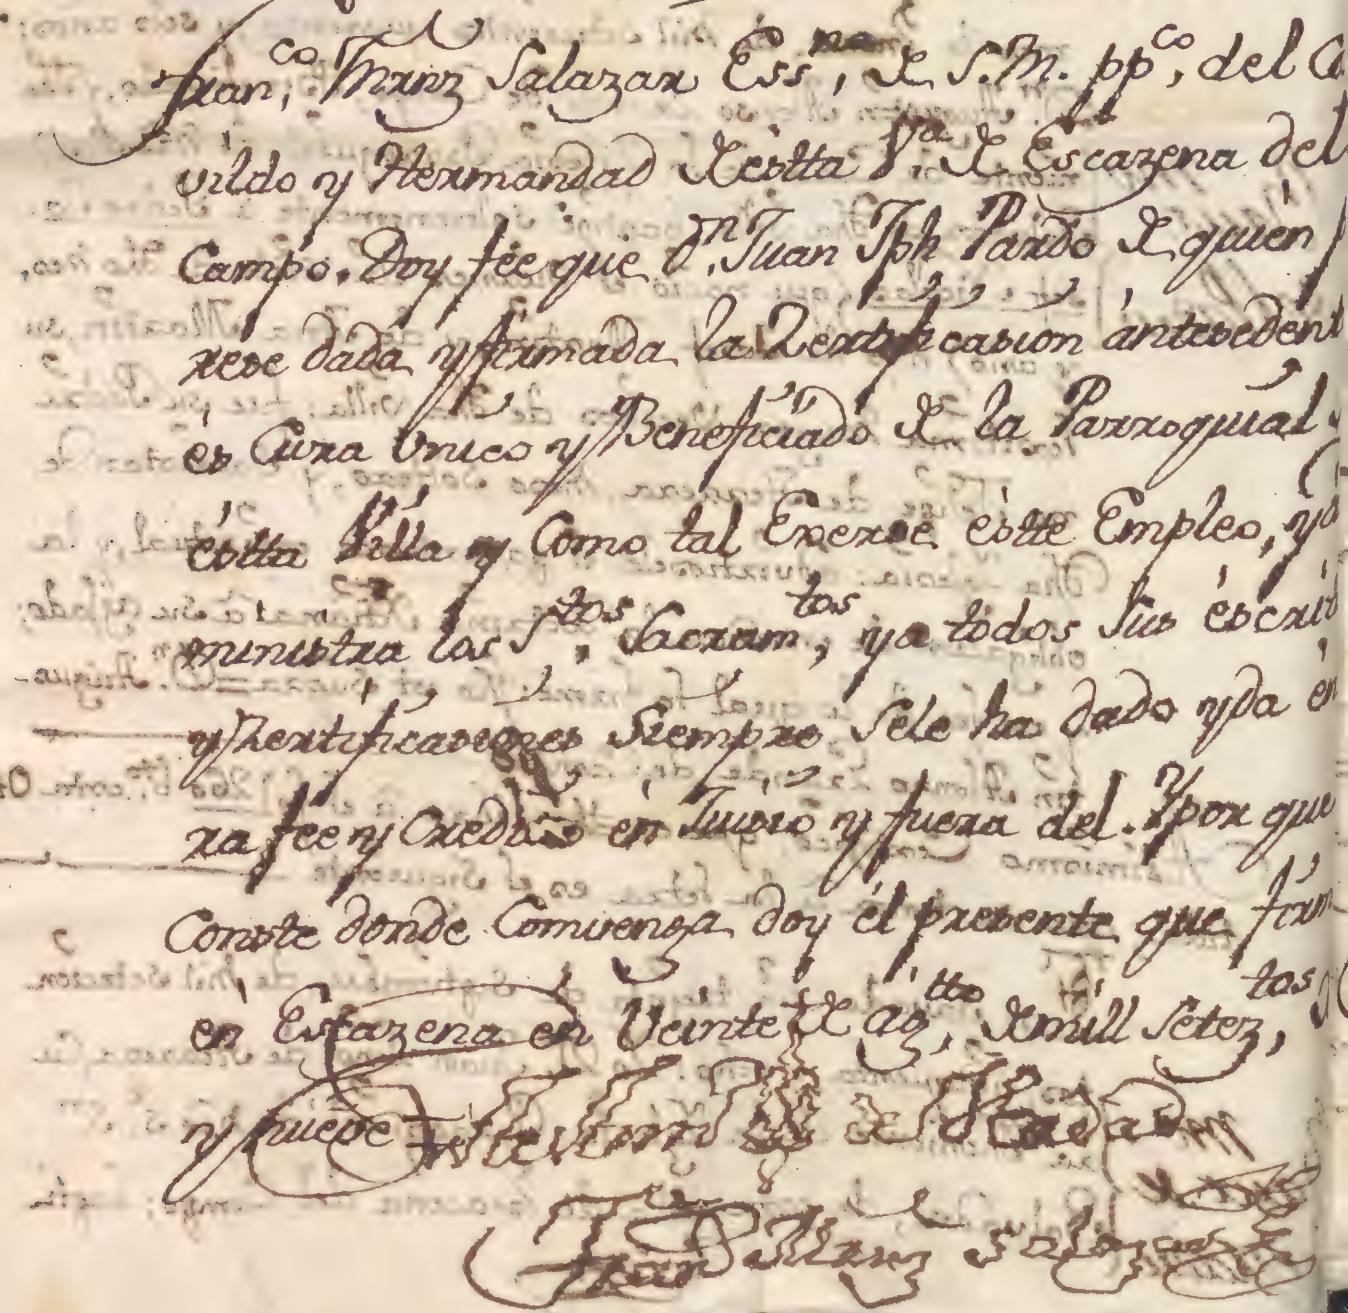 Fran.co Mrnz Salazar Ess.no de S.M. pp.co, del Ca
vildo y Hermandad de esta V.a de Escazena del
Campo. Doy fée que d.n Juan Jph Pardo de quien p
rese dada y firmada la Zertificasion ántesedent
és Cura Unico y Beneficiado de la Parroquial
ésta Villa y Como tal Exerse éste Empleo, y á
ministra los S.tos Sacram.tos, y a tódos Sus éscrit
y Zertificasiones Siempre Sele ha dado y da én
ra fee y Credito en Juisio y fuera del. Y por que
Conste donde Comvenga doy él presente que firm
en Escazena en Veinte de ag.tto de mill Setez.tos
y nueve = Testimonio de Verdad
Fran Mrnz Salazar